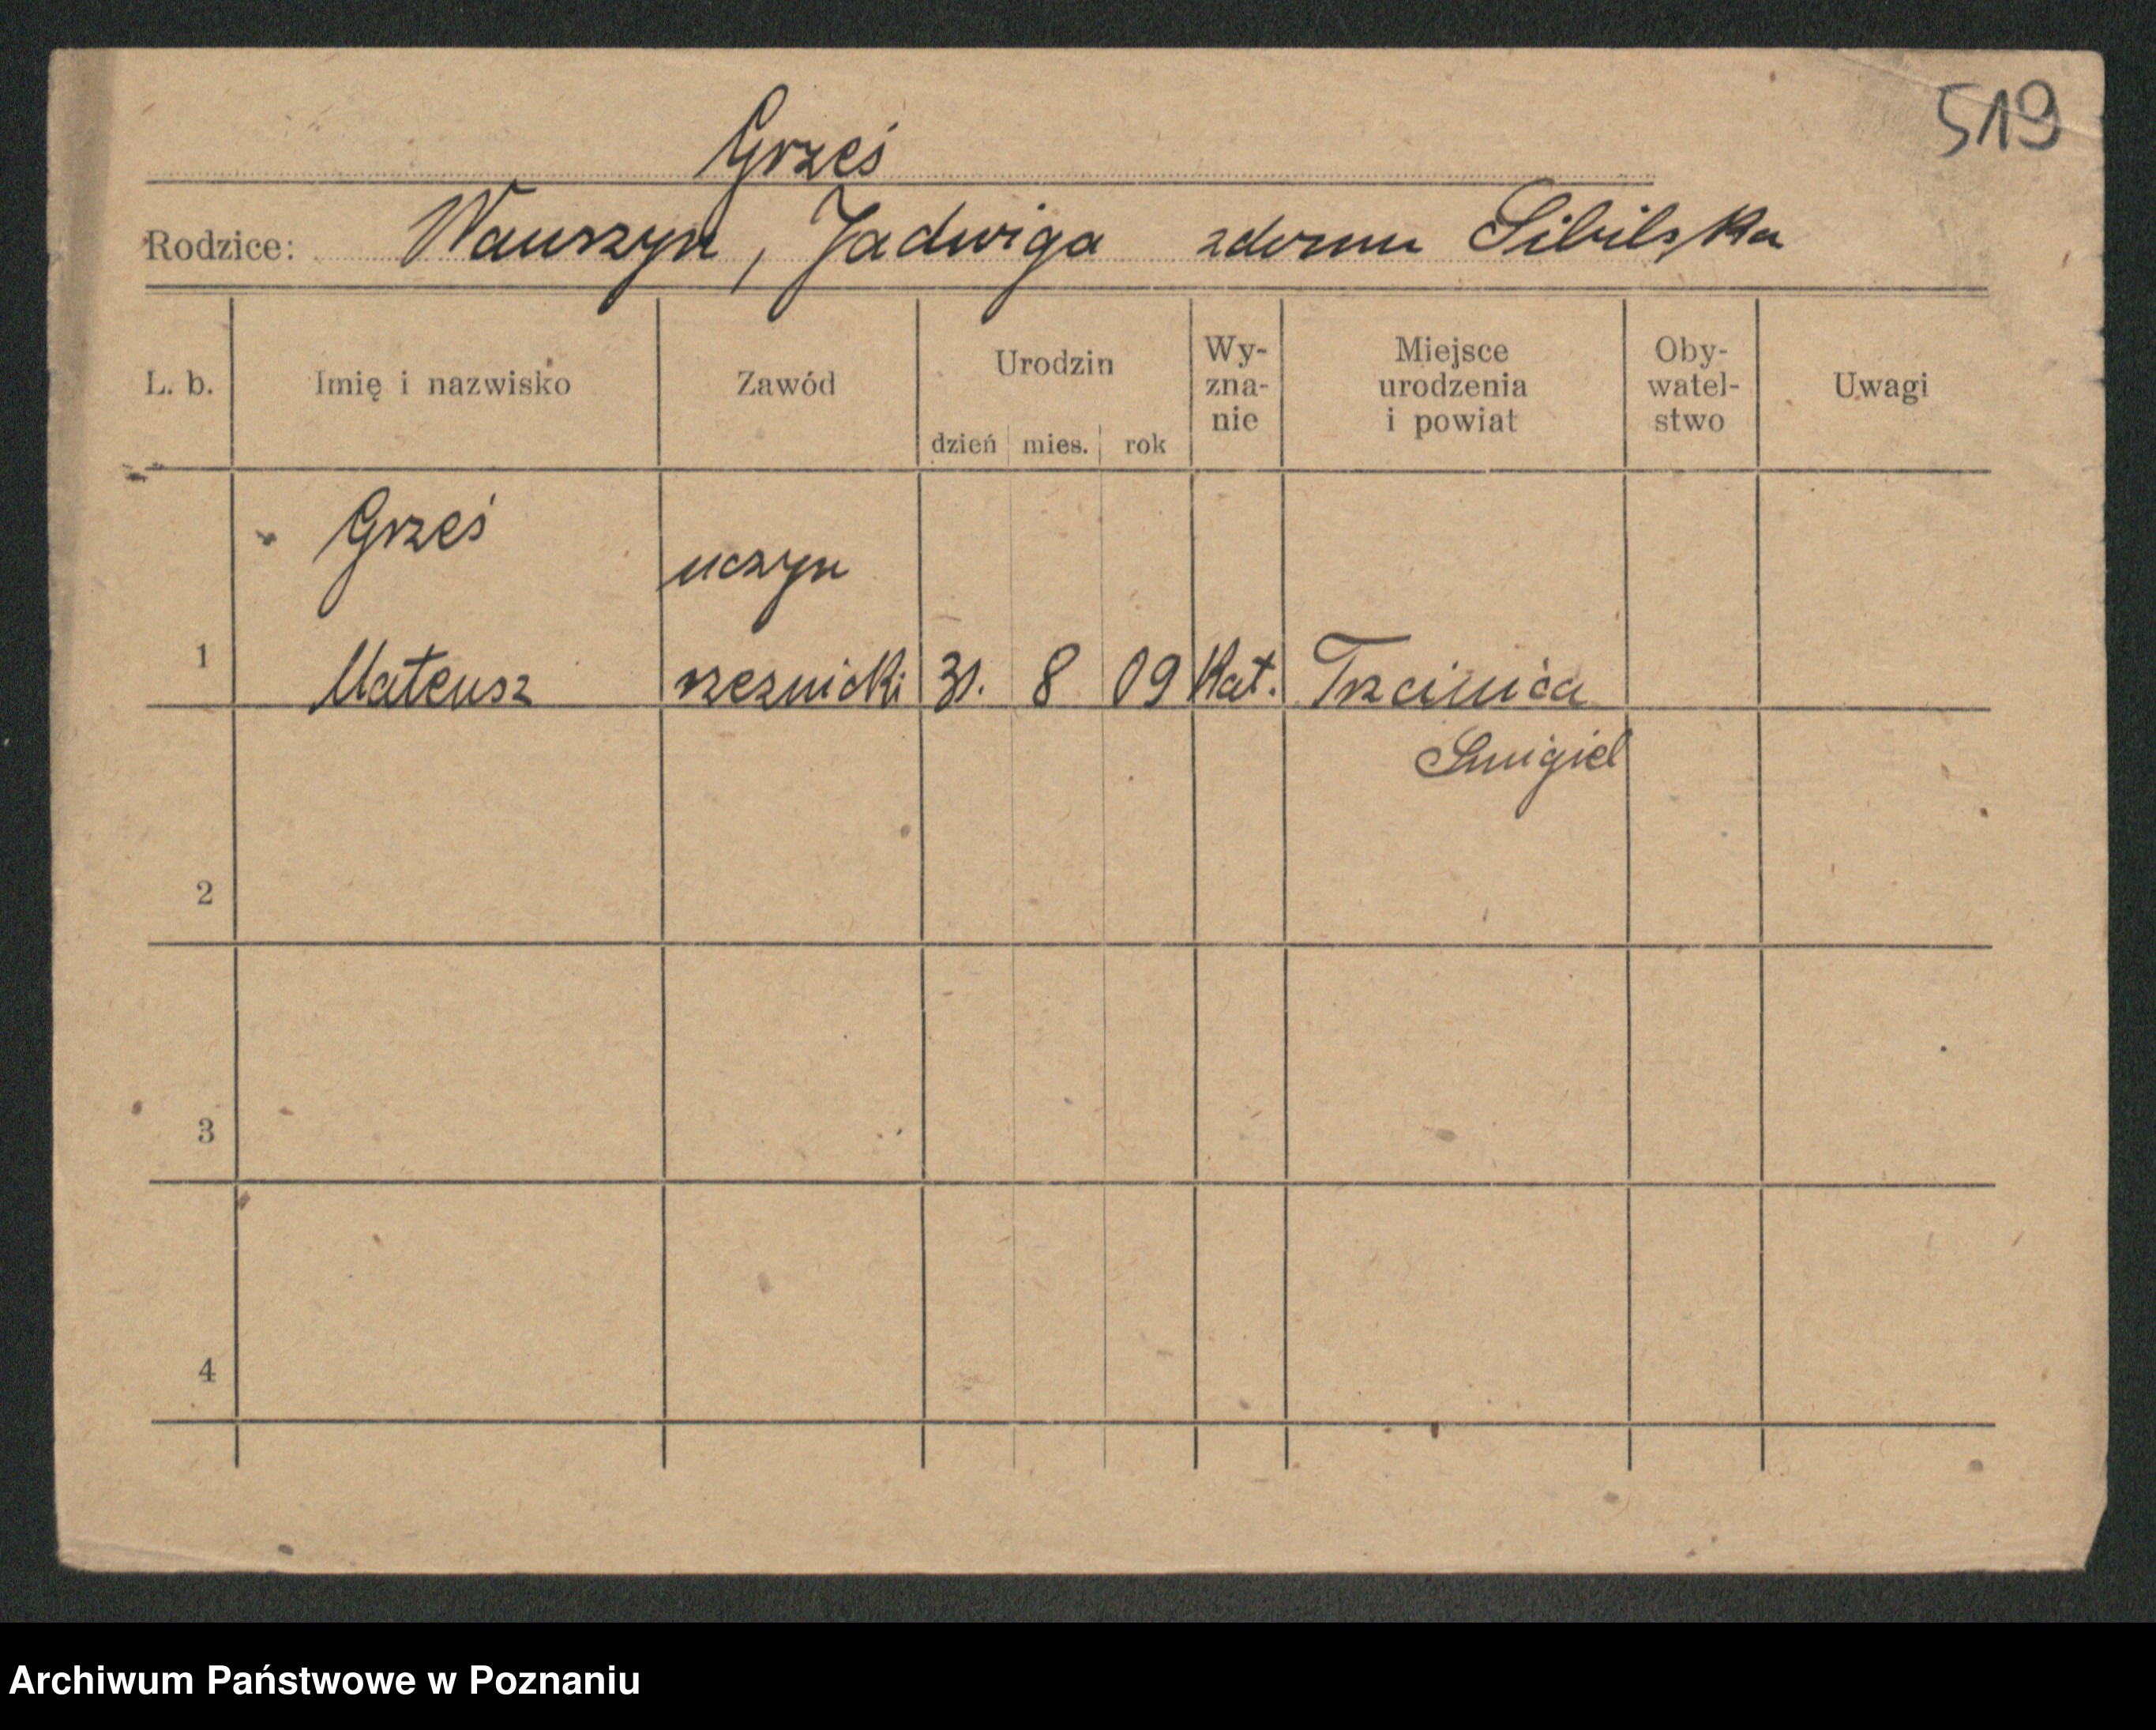 519
Grześ
Rodzice: Wawrzyn, Jadwiga zdomu Sibilska
L. b. Imię i nazwisko Zawód Urodzin dzień mies. rok Wy-zna-nie Miejsce urodzenia i powiat Oby-watel-stwo Uwagi
Grześ uczyn
1 Mateusz rzeznicki 31. 8 09 Kat. Trzcinica
Smigiel
2
3
4
Archiwum Państwowe w Poznaniu